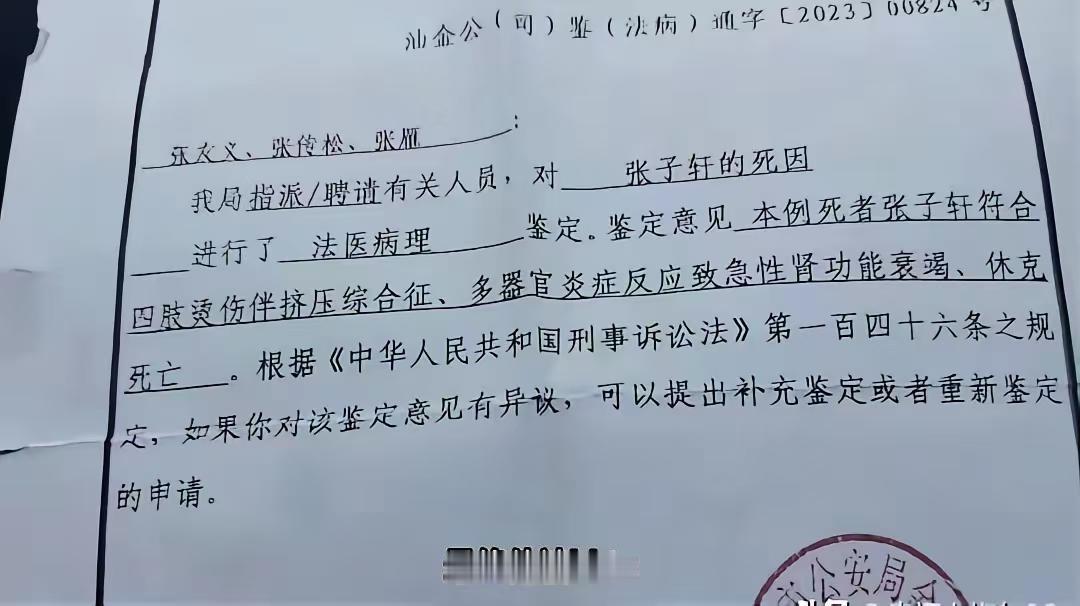 汕金公(司)鉴(法病)通字〔2023〕00824号
张传松、张雁:
我局指派/聘请有关人员,对 张子轩的死因
进行了 法医病理 鉴定。鉴定意见 本例死者张子轩符合
四肢烫伤伴挤压综合征、多器官炎症反应致急性肾功能衰竭、休克
死亡。根据《中华人民共和国刑事诉讼法》第一百四十六条之规
定,如果你对该鉴定意见有异议,可以提出补充鉴定或者重新鉴定
的申请。
公安局